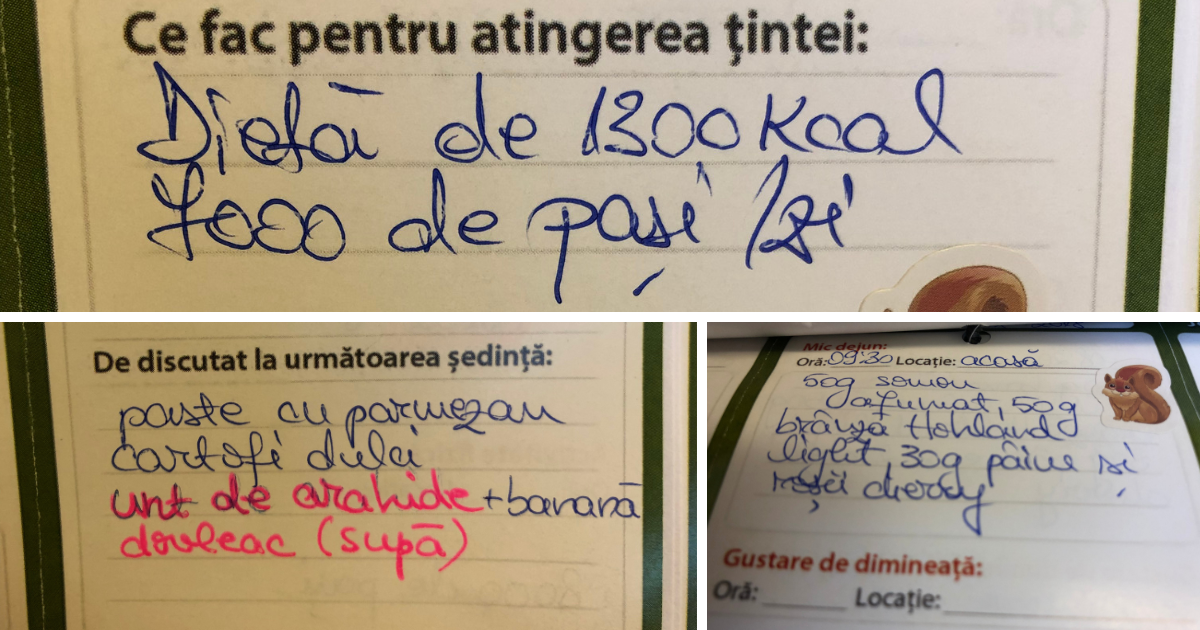 Ce fac pentru atingerea țintei:
Dietă de 1300 Kcal
7000 de pași /zi
De discutat la următoarea ședință:
paste cu parmezan
cartofi dulci
unt de arahide + banană
dovleac (supă)
Mic dejun:
Oră: 09:30 Locație: acasă
50g somon
afumat, 50g
brânză Hohland
light, 30g pâine și
roșii cherry
Gustare de dimineață:
Oră: Locație: